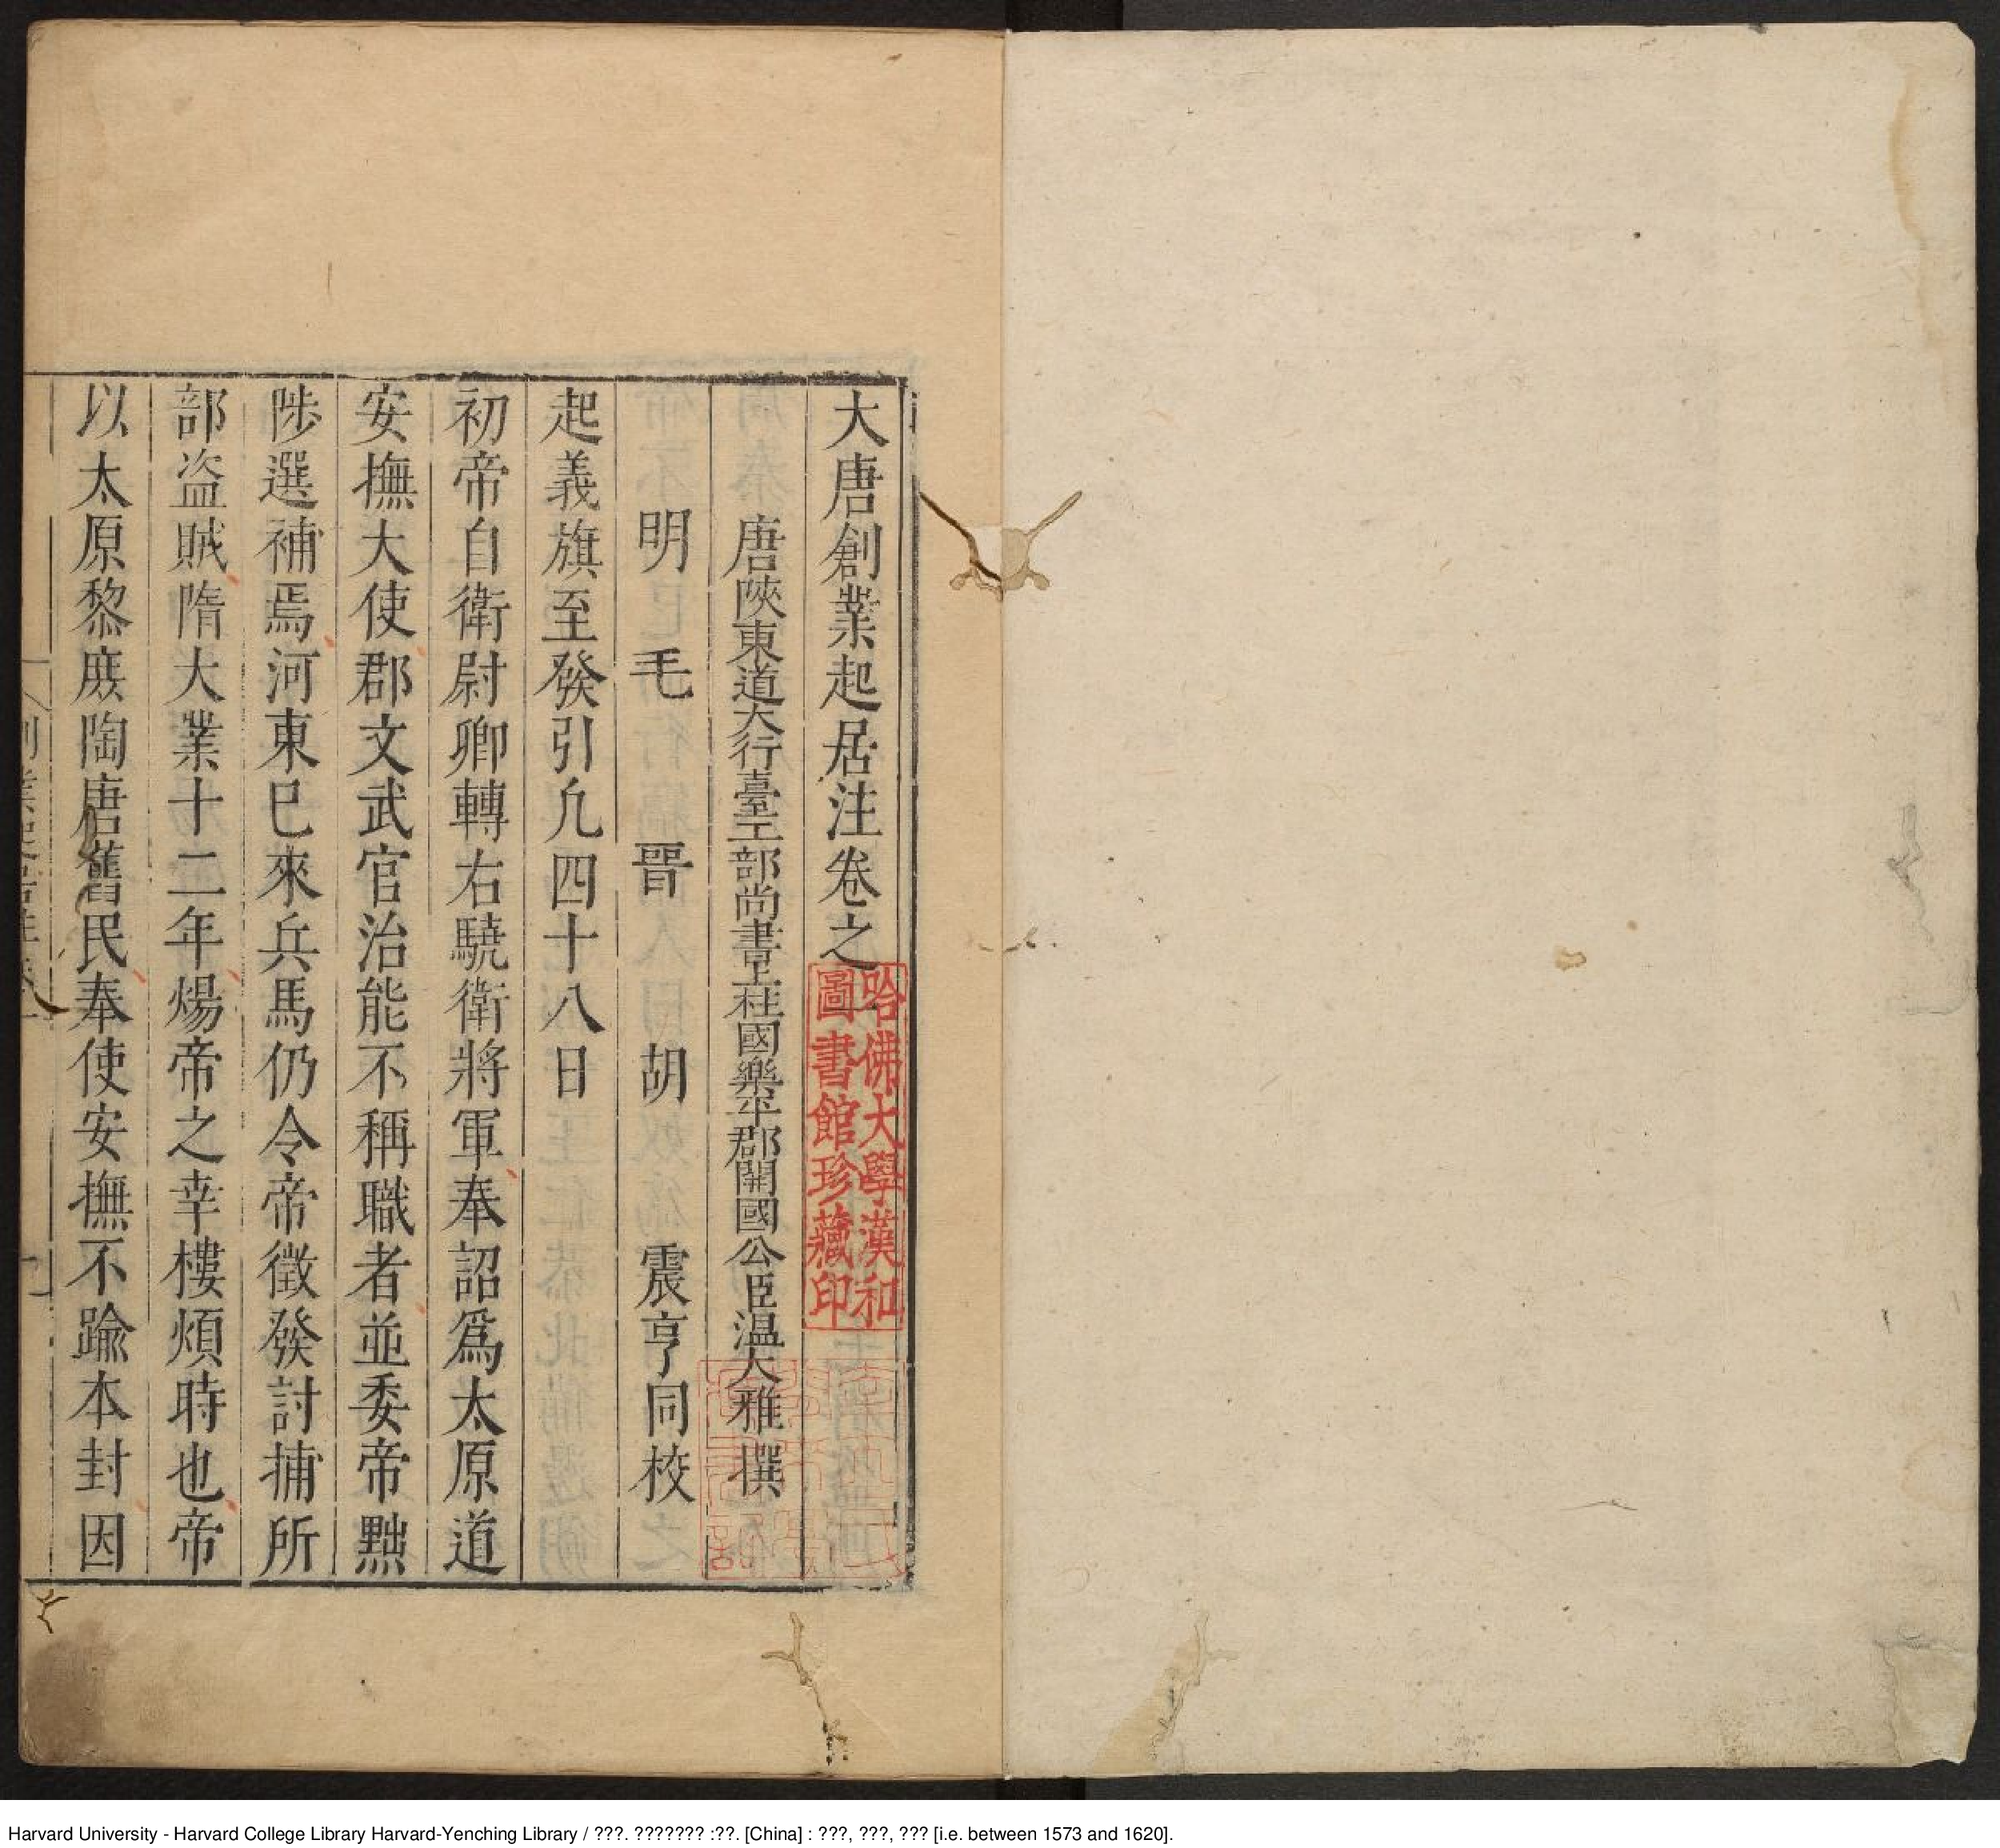 大唐創業起居注卷之
唐陝東道大行臺工部尚書上柱國樂平郡開國公臣温大雅撰
明毛晉胡震亨同校
起義旗至發引凡四十八日
初帝自衛尉卿轉右驍衛將軍奉詔爲太原道
安撫大使郡文武官治能不稱職者並委帝黜
陟選補焉河東已來兵馬仍令帝徵發討捕所
部盗賊隋大業十二年煬帝之幸樓煩時也帝
以太原黎庶陶唐舊民奉使安撫不踰本封因
哈佛大學漢和
圖書館珍藏印
Harvard University - Harvard College Library Harvard-Yenching Library / ???. ??????? :??. [China] : ???, ???, ??? [i.e. between 1573 and 1620].